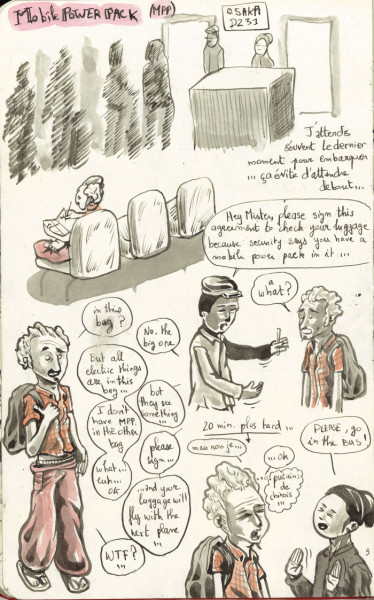 Mobile Power Pack
(MPP)
OSAKA
D231
J'attends
souvent le dernier
moment pour embarquer
... ça évite d'attendre
debout...
Hey Mister, please sign this
agreement to check your luggage
because security says you have a
mobile power pack in it...
a
what?
in this
bag?
No. the
big one
But all
electric things
are in this
bag...
but
they see
something
...
I don't
have MPP.
in the other
bag
please
sign...
what...
euh...
ok
...and your
luggage will
fly with the
next plane
...
WTF?
...
20 min. plus tard...
mais non je...
... ok
putains
de
chinois...
PLEASE, go
in the BUS!
5